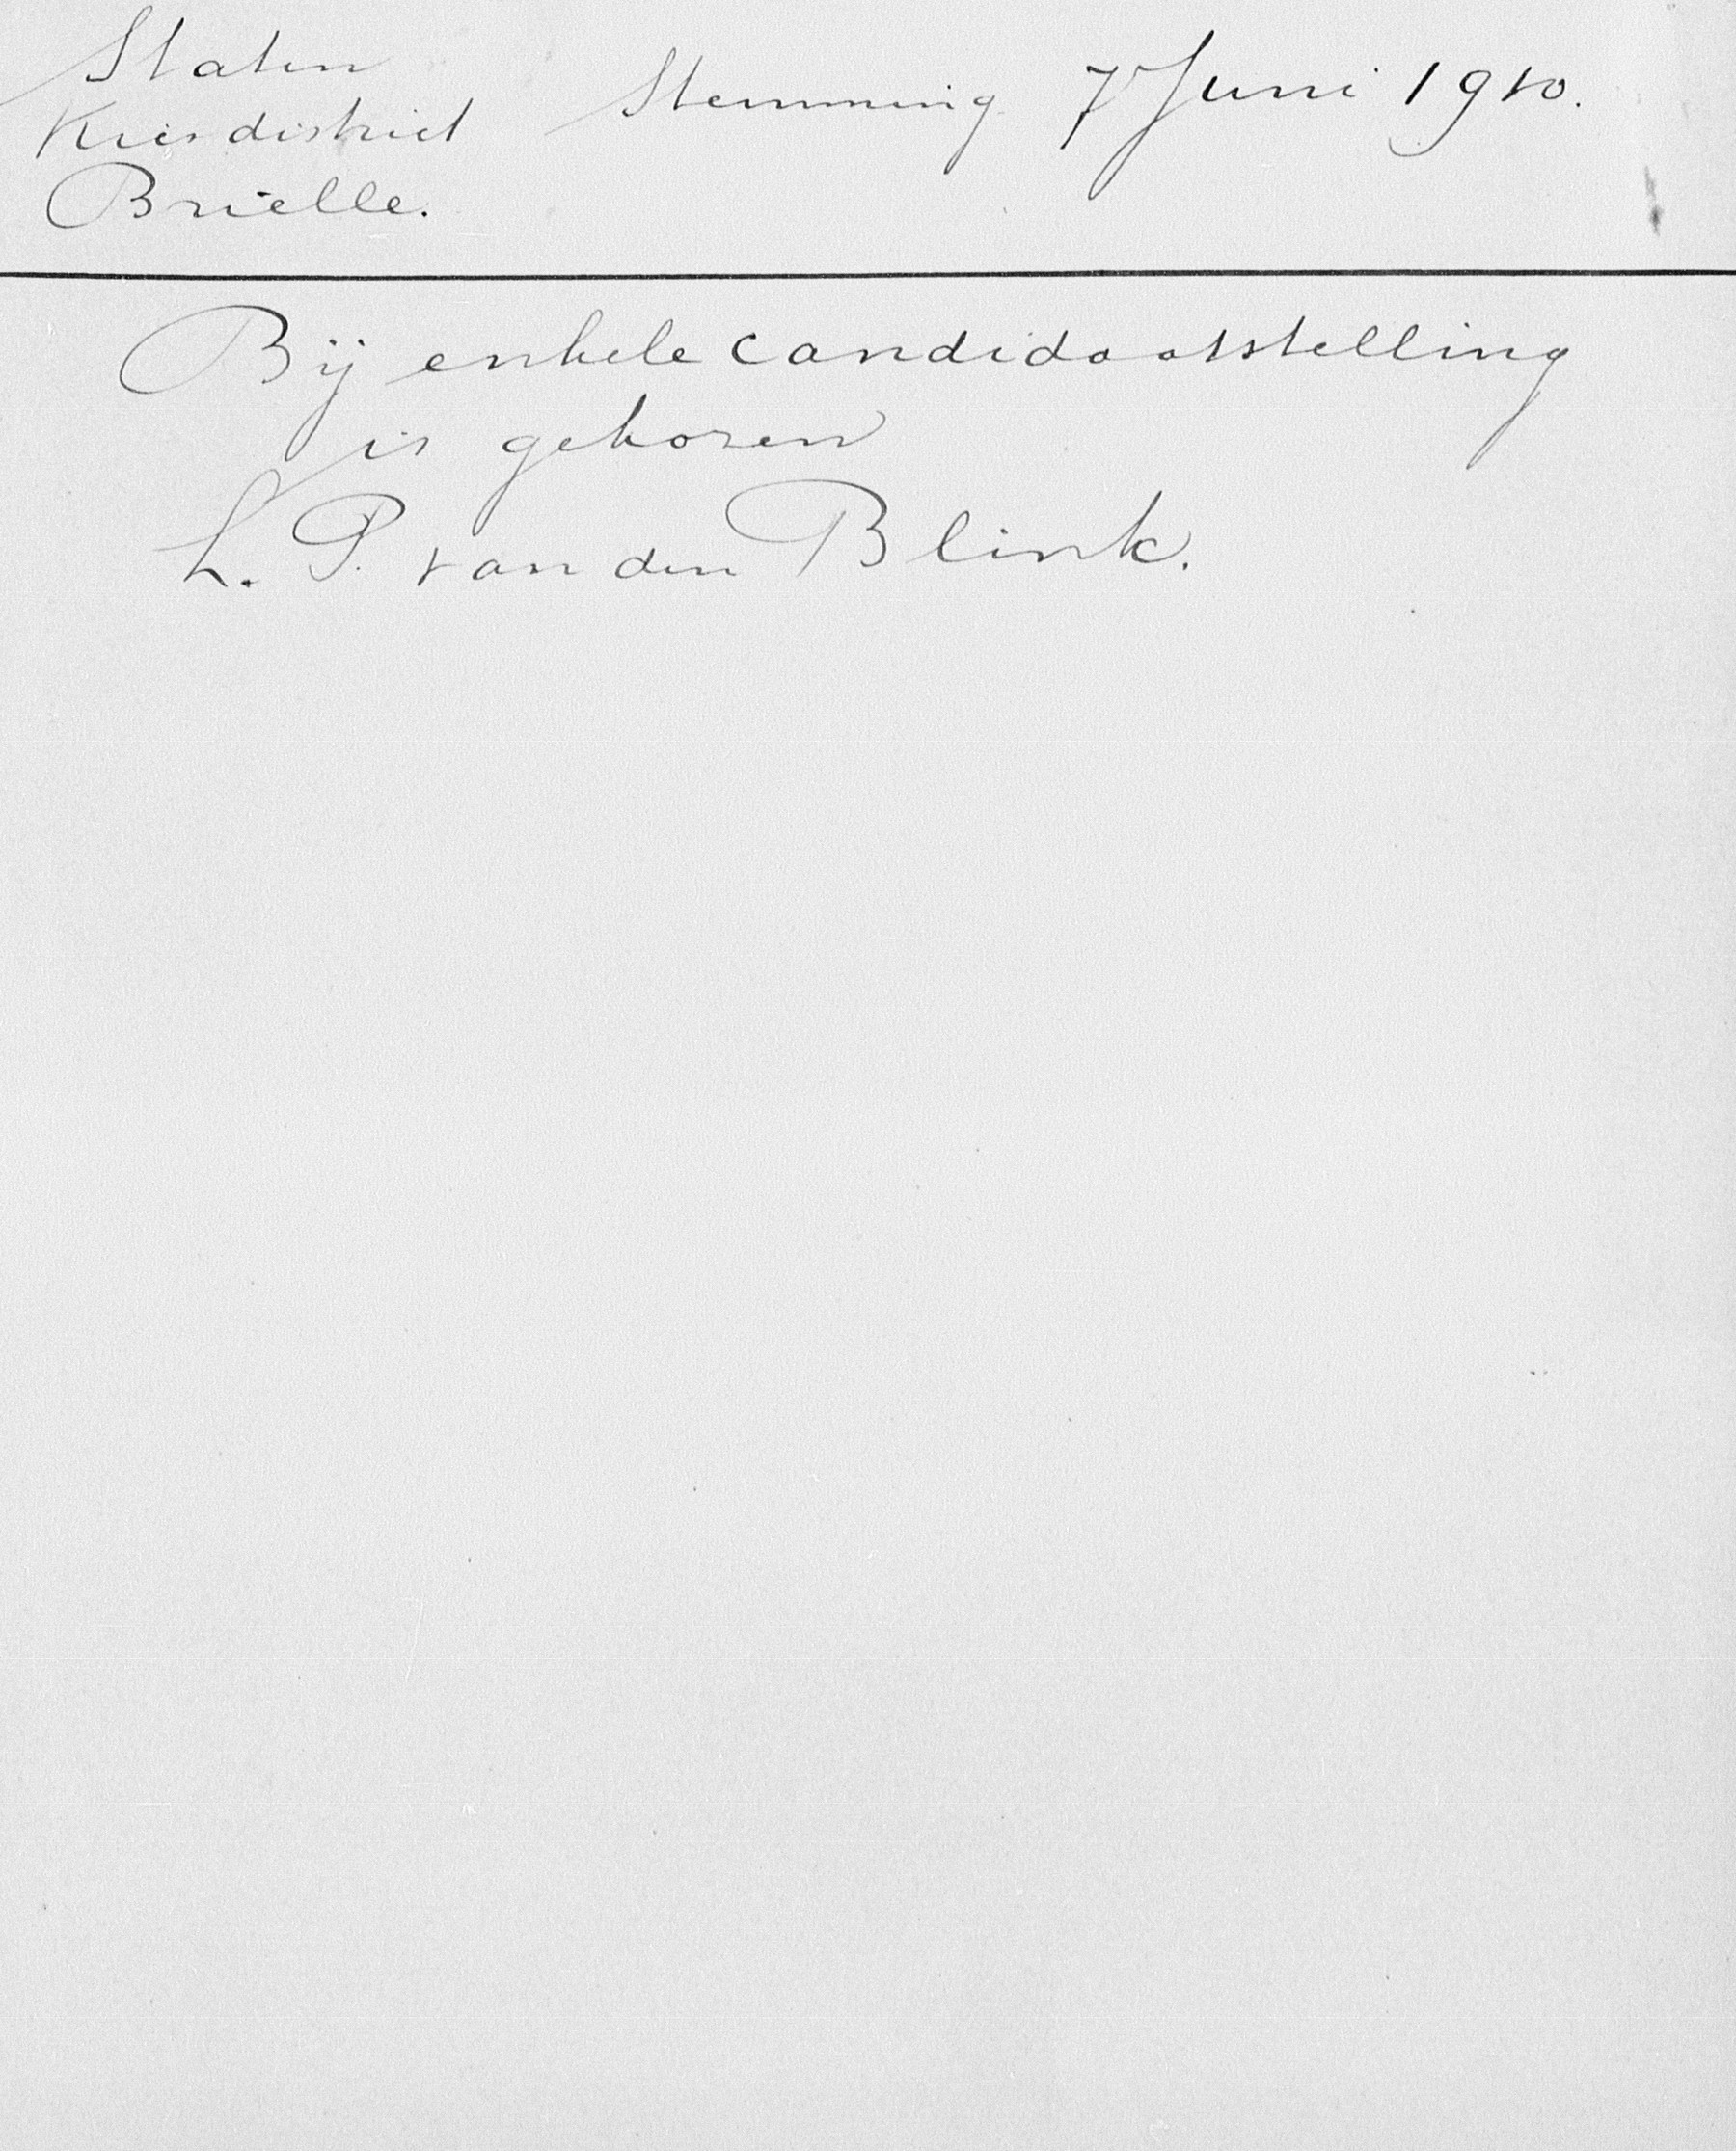 Staten
Kiesdistrict
Brielle.
Stemming 7 Juni 1910.
Bij enkele candidaatstelling
is gekozen
L. P. van den Blink.